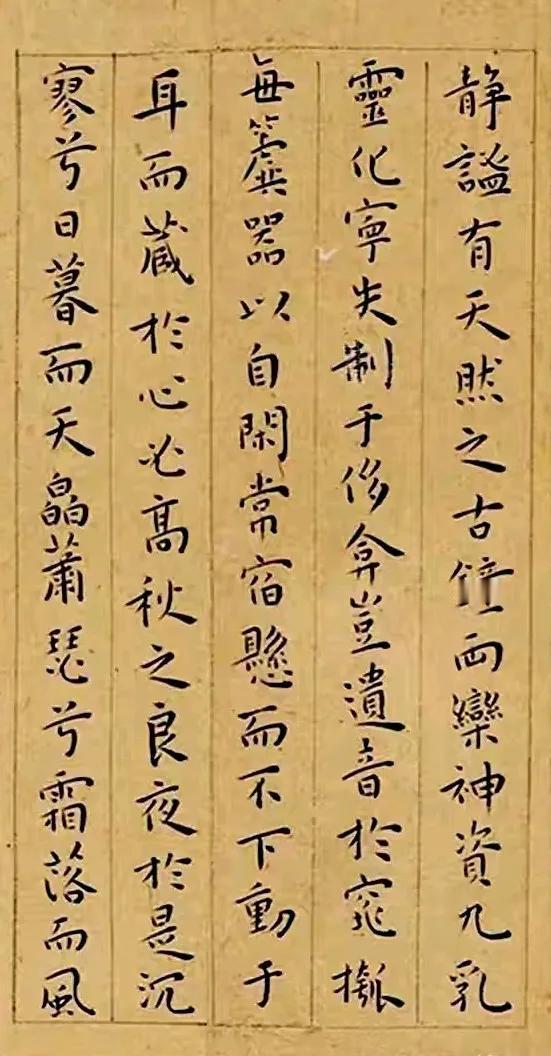 静謐有天然之古鐘而欒神資九乳
靈化寧失制于侈弇豈遺音於窕摦
每簨器以自閑常宿懸而不下動于
耳而蔵於心必高秋之良夜於是沉
寥兮日暮而天晶蕭瑟兮霜落而風